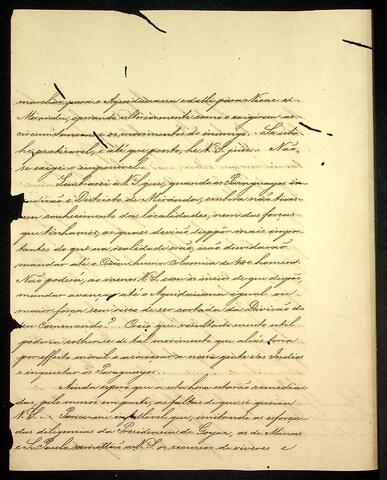 marchar para o Aquidauana e dalli para Nioac e
Miranda, operando ulteriormente como o exigirem as
circunstancias e os movimentos do inimigo. Se isto
he praticavel, e até que ponto, he V.S. juiz. Não
se exige o impossivel.
Lembrarei a V.S. que, quando os Paraguayos in
vadirão o Districto de Miranda, embora não tives-
sem conhecimento das localidades, nem das forças
que tinhamos, as quaes devião suppôr mais impor
tantes do que na realidade erão, não duvidarão
mandar até o Coxim huma columna de 400 homens.
Não poderá, ao menos V.S. com os meios de que dispõe,
mandar avançar até o Aquidauana igual ou
maior força sem risco de ser cortada da Divisão do
seu Commando? Creio que resultado muito util
poderia colher-se de tal movimento que aliás teria
por effeito moral o accoroçoar a nossa gente e os Indios
e inquietar os Paraguayos.
Ainda espero que a esta hora estarão remedia
das, pelo menos em parte, as faltas de que se queixa
V.S. Parece-me infallivel que, imitando os esforços
das diligencias da Presidencia de Goyaz, as de Minas
e S. Paulo remettão a V.S. os recursos de viveres e